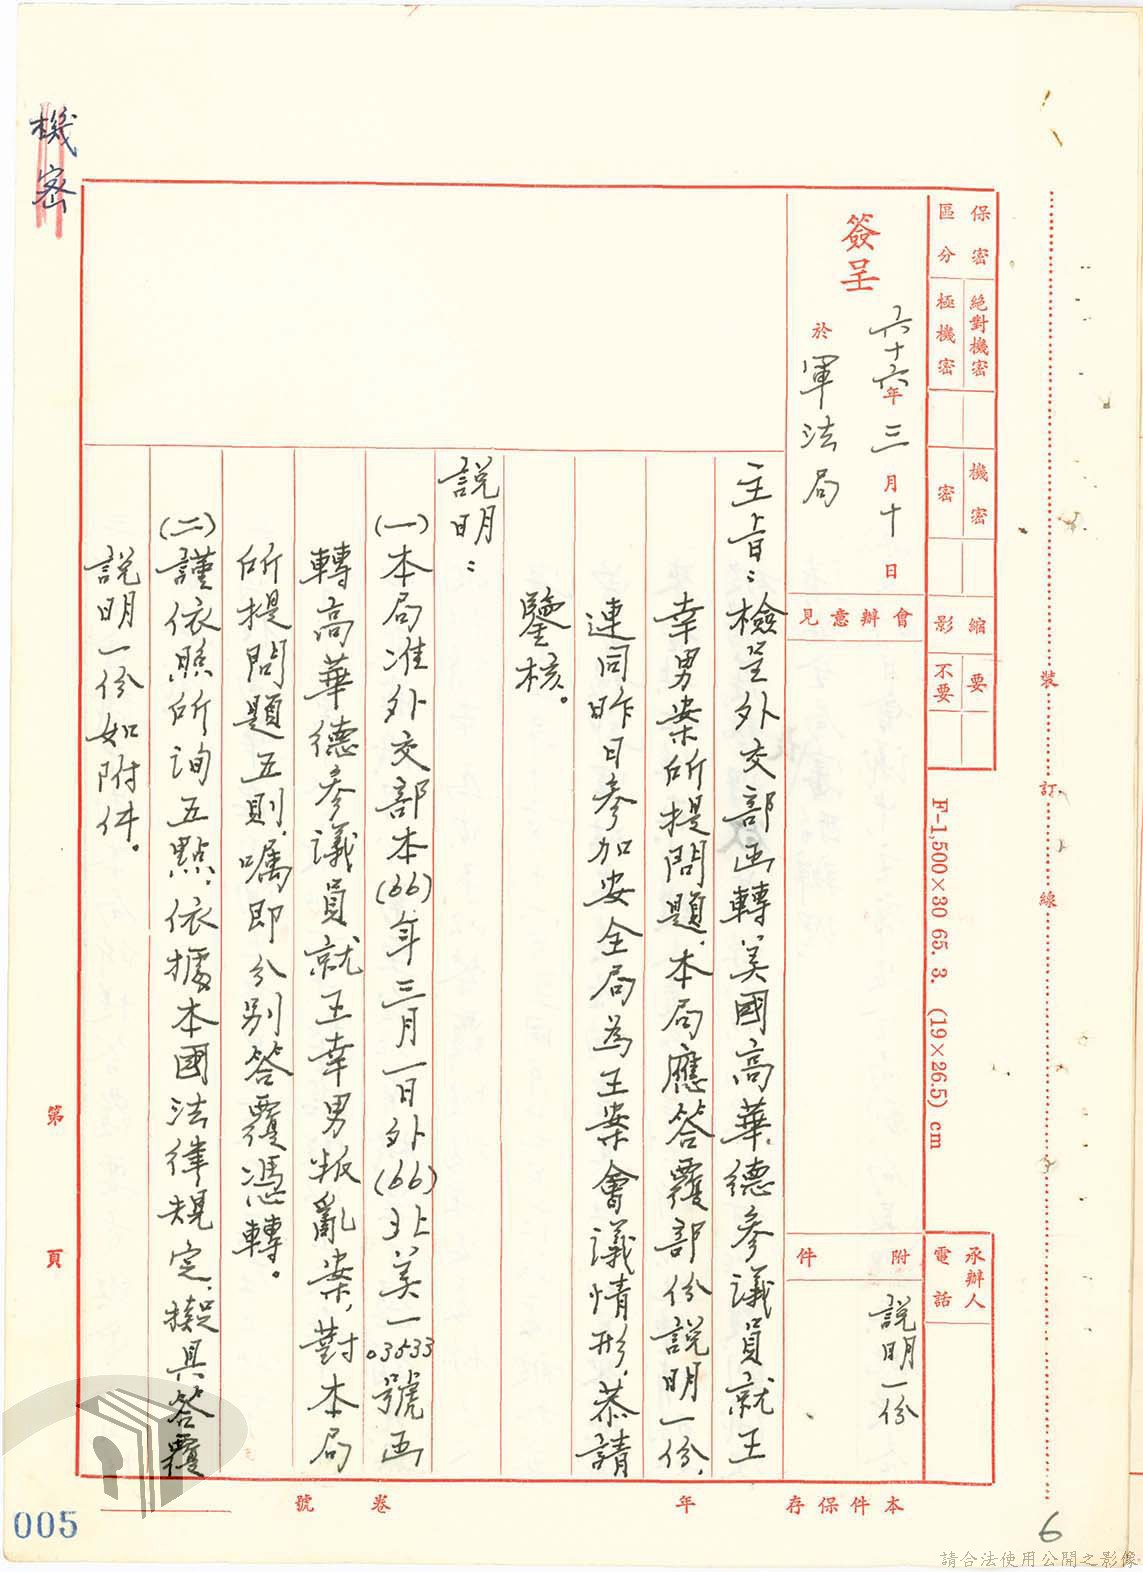 機密
保密區分
絕對機密
極機密
機密
密
縮影
要
不要
F-1,500×30 65. 3. (19×26.5) cm
承辦人
電話
簽呈
六十六年三月十日
於軍法局
會辦意見
附件
說明一份
主旨：檢呈外交部函轉美國高華德參議員就王
幸男案所提問題，本局應答覆部份說明一份，
連同昨日參加安全局為王案會議情形，恭請
鑒核。
說明：
(一)本局准外交部本(66)年三月一日外(66)北美一03533號函
轉高華德參議員就王幸男叛亂案，對本局
所提問題五則，囑即分別答覆憑轉。
(二)謹依照所詢五點，依據本國法律規定，擬具答覆
說明一份如附件。
裝訂線
第頁
本件保存年
卷號
005
6
請合法使用公開之影像